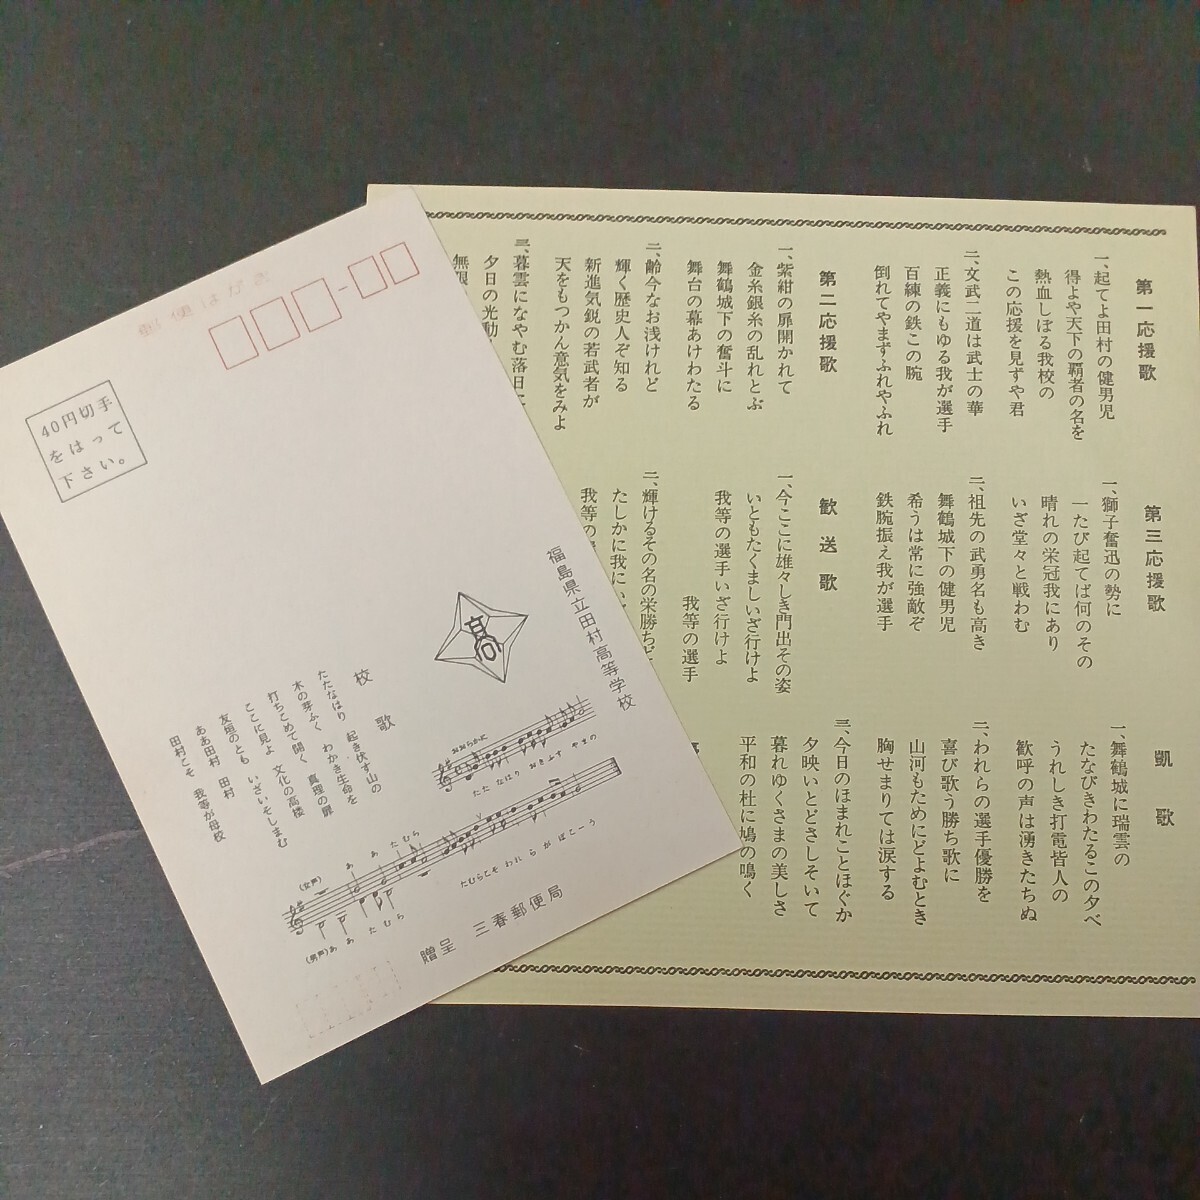 郵便はがき
40円切手
をはって
下さい。
福島県立田村高等学校
髙
校歌
たたなはり 起き伏す山の
木の芽ふく わかき生命を
打ちこめて開く 真理の扉
ここに見よ 文化の高楼
友垣のとも いざいそしまむ
ああ田村 田村
田村こそ 我等が母校
おおらかに
たたなはり おきふす やまの
(女声) あ あ たむら
たむらこそ われ ら が ぼこーう
(男声) あ あ た む ら
贈呈 三春郵便局
第一応援歌
一、起てよ田村の健男児
得よや天下の覇者の名を
熱血しぼる我校の
この応援を見ずや君
二、文武二道は武士の華
正義にもゆる我が選手
百練の鉄この腕
倒れてやまずふれやふれ
第二応援歌
一、紫紺の扉開かれて
金糸銀糸の乱れとぶ
舞鶴城下の奮斗に
舞台の幕あけわたる
二、齢今なお浅けれど
輝く歴史人ぞ知る
新進気鋭の若武者が
天をもつかん意気をみよ
三、暮雲になやむ落日に
夕日の光動
無限
第三応援歌
一、獅子奮迅の勢に
一たび起てば何のその
晴れの栄冠我にあり
いざ堂々と戦わむ
二、祖先の武勇名も高き
舞鶴城下の健男児
希うは常に強敵ぞ
鉄腕振え我が選手
歓送歌
一、今ここに雄々しき門出その姿
いともたくましいざ行けよ
我等の選手いざ行けよ
我等の選手
二、輝けるその名の栄勝ち
たしかに我に
我等の
凱歌
一、舞鶴城に瑞雲の
たなびきわたるこの夕べ
うれしき打電皆人の
歓呼の声は湧きたちぬ
二、われらの選手優勝を
喜び歌う勝ち歌に
山河もためにどよむとき
胸せまりては涙する
三、今日のほまれことほぐか
夕映いとどさしそいて
暮れゆくさまの美しさ
平和の杜に鳩の鳴く